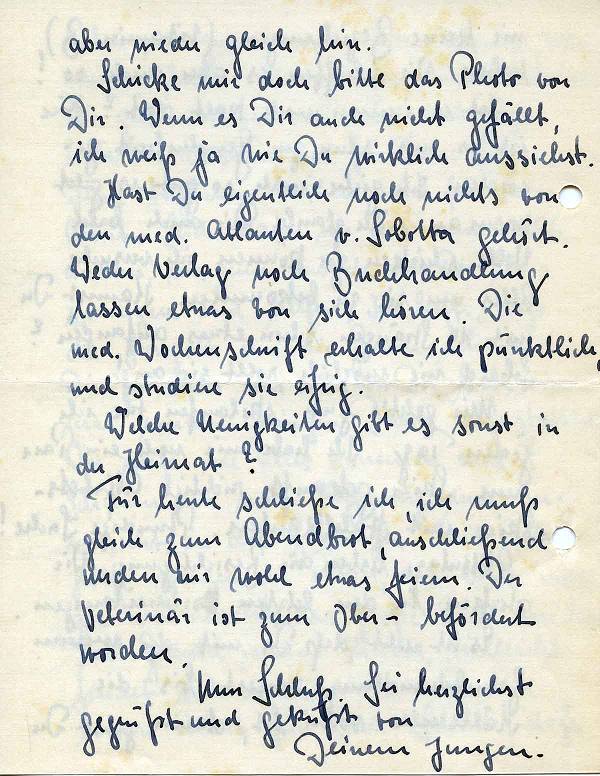 aber wieder gleich hin.
Schicke mir doch bitte das Photo von
Dir. Wenn es Dir auch nicht gefällt,
ich weiß ja wie Du wirklich aussiehst.
Hast Du eigentlich noch nichts von
den med. Atlanten v. Sobotta gehört.
Weder Verlag noch Buchhandlung
lassen etwas von sich hören. Die
med. Wochenschrift erhalte ich pünktlich,
und studiere sie eifrig.
Welche Neuigkeiten gibt es sonst in
der Heimat?
Für heute schließe ich, ich muß
gleich zum Abendbrot, anschließend
werden wir wohl etwas feiern. Der
Veterinär ist zum Ober- befördert
worden.
Nun Schluß. Sei herzlichst
gegrüßt und geküßt von
Deinem Jungen.